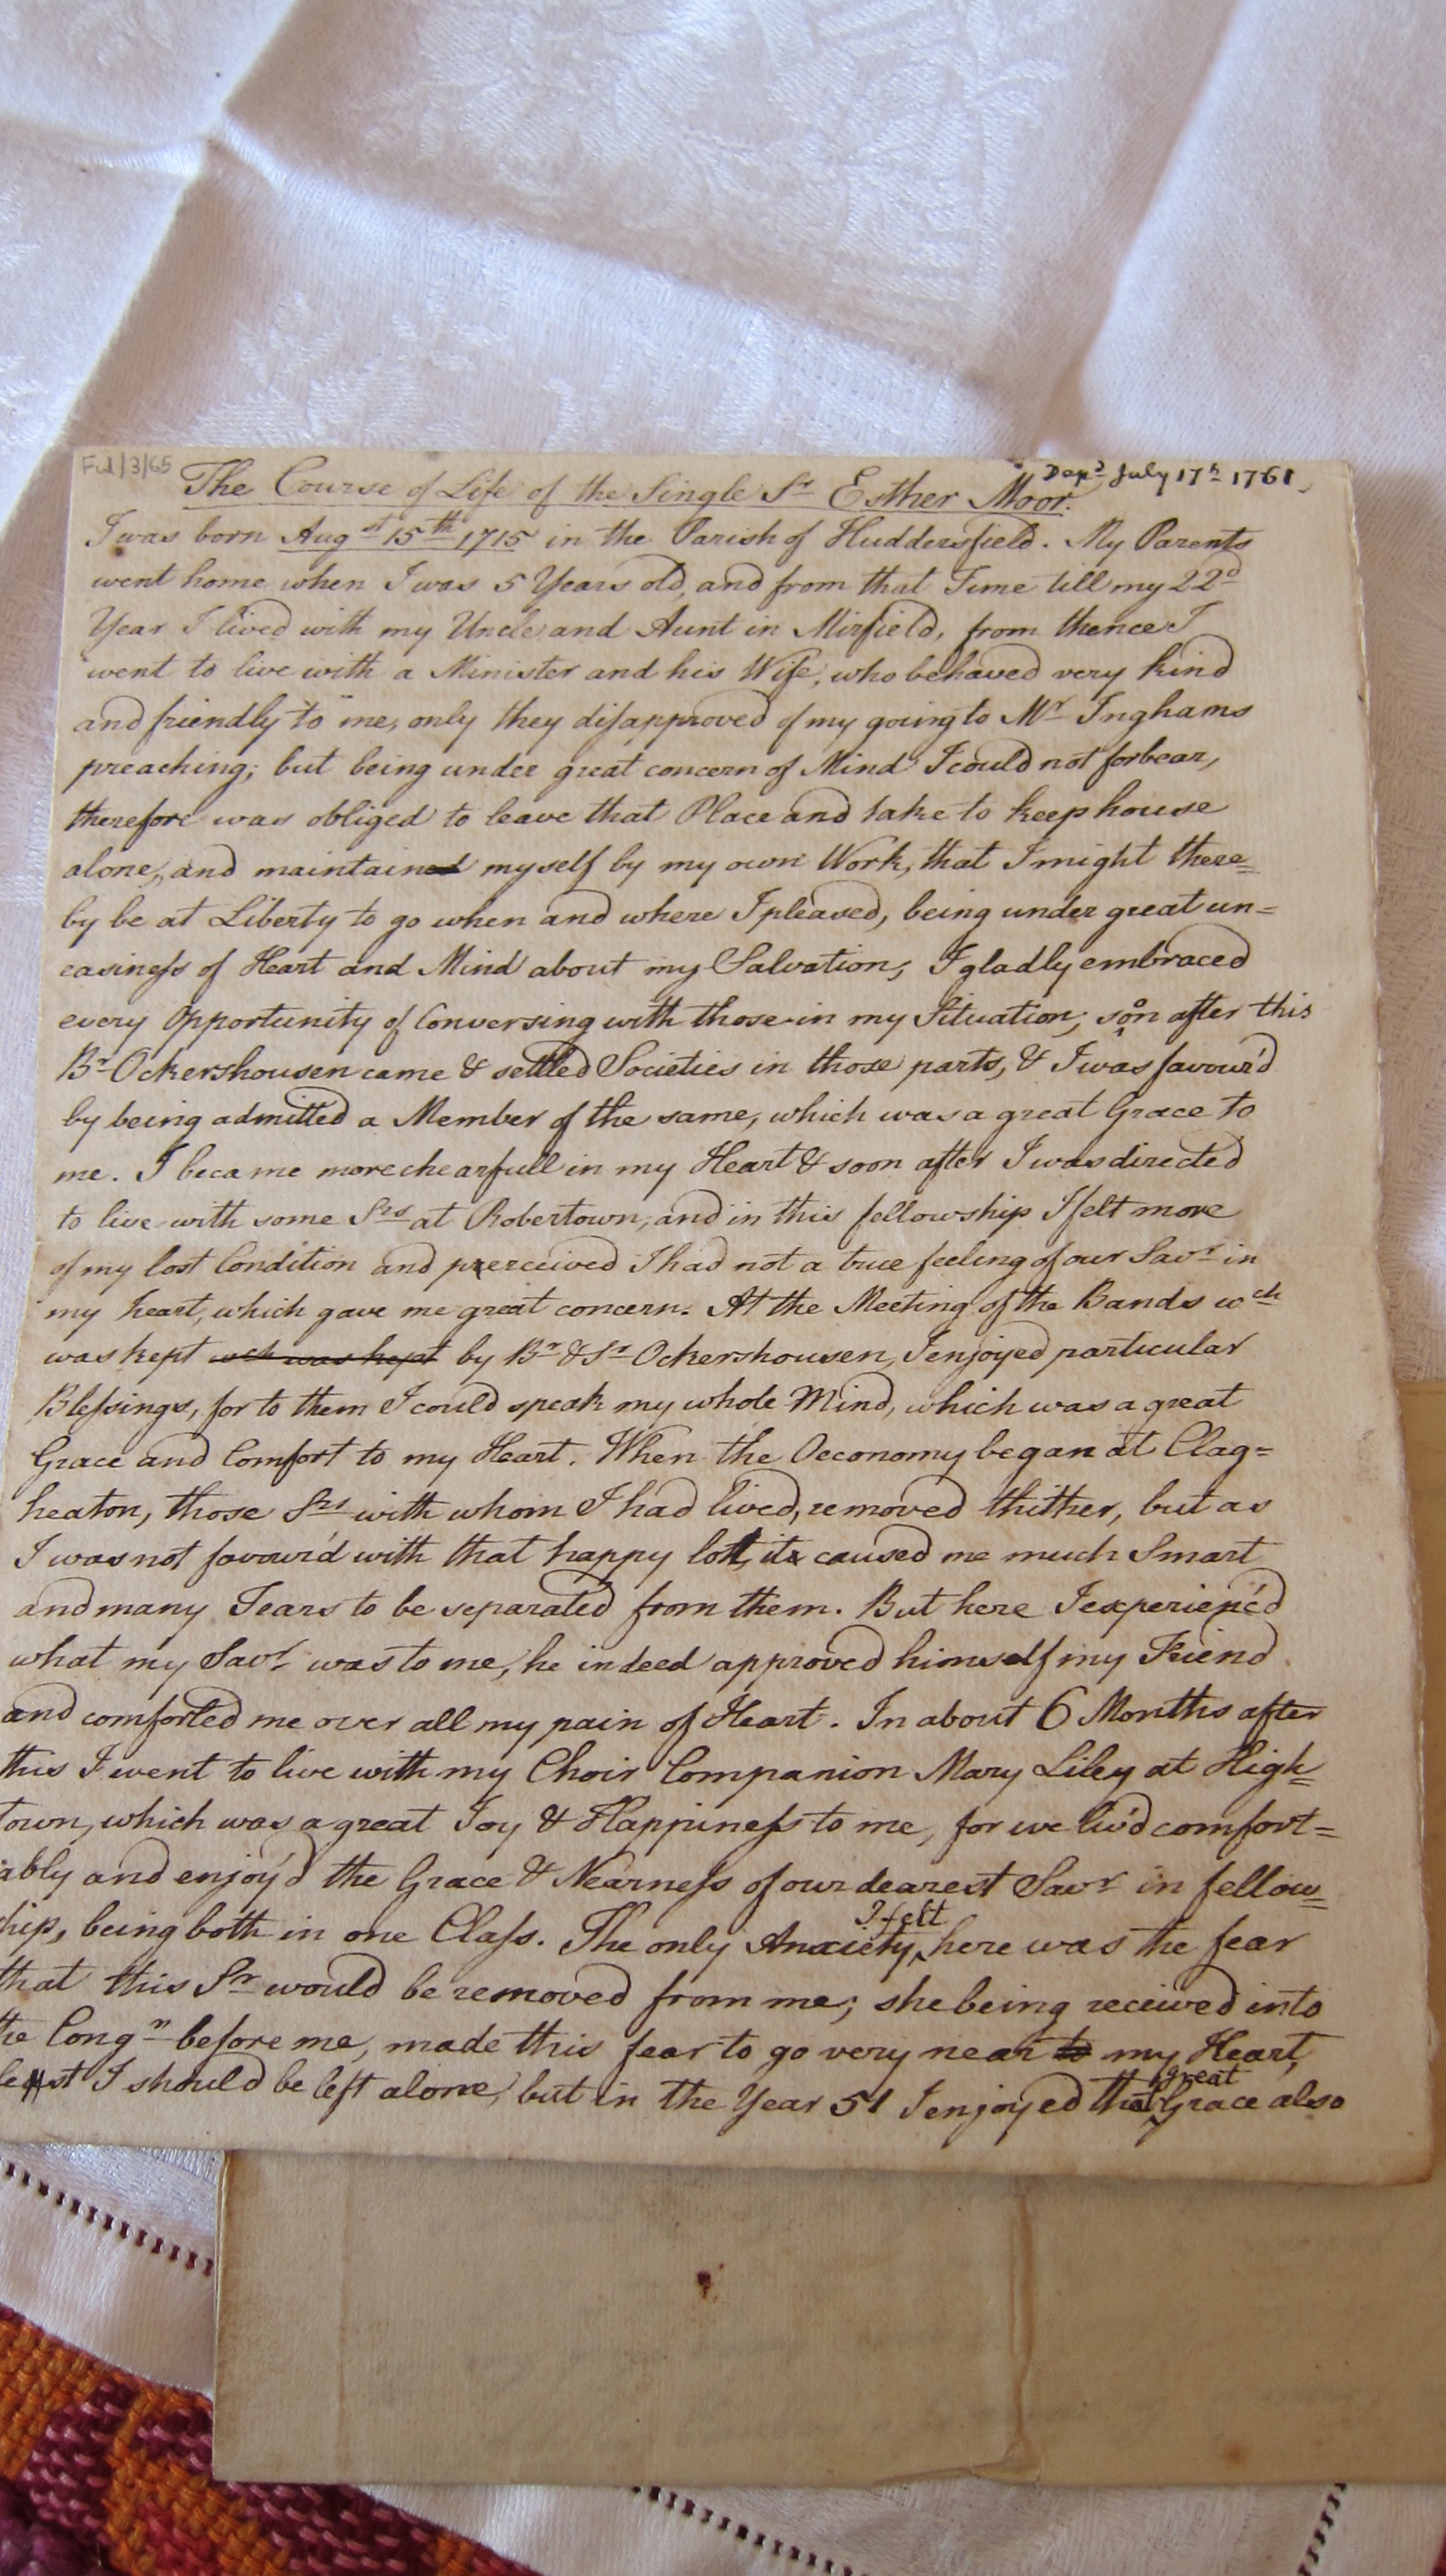 Ful/3/65
Dep.d July 17th 1761
The Course of Life of the Single Sr Esther Moor.
I was born Augst 15th 1715 in the Parish of Huddersfield. My Parents
went home when I was 5 Years old, and from that Time till my 22d
Year I lived with my Uncle and Aunt in Mirfield, from thence I
went to live with a Minister and his Wife, who behaved very kind
and friendly to me, only they disapproved of my going to Mr Inghams
preaching; but being under great concern of Mind I could not forbear,
therefore was obliged to leave that Place and take to keep house
alone, and maintained myself by my own Work, that I might there=
by be at Liberty to go when and where I pleased, being under great un=
easiness of Heart and Mind about my Salvation; I gladly embraced
every Opportunity of Conversing with those in my Situation; soon after this
Br Ockershousen came & settled Societies in those parts, & I was favour'd
by being admitted a Member of the same, which was a great Grace to
me. I became more chearfull in my Heart & soon after I was directed
to live with some Srs at Robertown, and in this fellowship I felt more
of my lost Condition and perceived I had not a true feeling of our Savr in
my heart, which gave me great concern. At the Meeting of the Bands wch
was kept wch was kept by Br & Sr Ockershousen, I enjoyed particular
Blessings, for to them I could speak my whole Mind, which was a great
Grace and Comfort to my Heart. When the Oeconomy began at Clag=
heaton, those Srs with whom I had lived, removed thither, but as
I was not favour'd with that happy lott, it caused me much Smart
and many Tears to be separated from them. But here I experienc'd
what my Savr was to me, he indeed approved himself my Friend
and comforted me over all my pain of Heart. In about 6 Months after
this I went to live with my Choir Companion Mary Liley at High=
town, which was a great Joy & Happiness to me, for we liv'd comfort=
ably and enjoy'd the Grace & Nearness of our dearest Savr in fellow=
ship, being both in one Class. The only Anxiety I felt here was the fear
that this Sr would be removed from me; she being received into
the Congn before me, made this fear to go very near to my Heart,
lest I should be left alone, but in the Year 51 I enjoyed that great Grace also